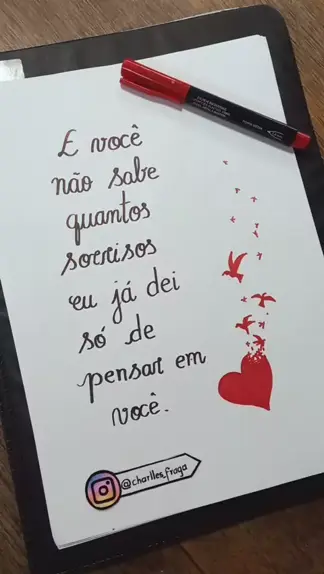 E você
não sabe
quantos
sorrisos
eu já dei
só de
pensar em
você.
@charlles_fraga